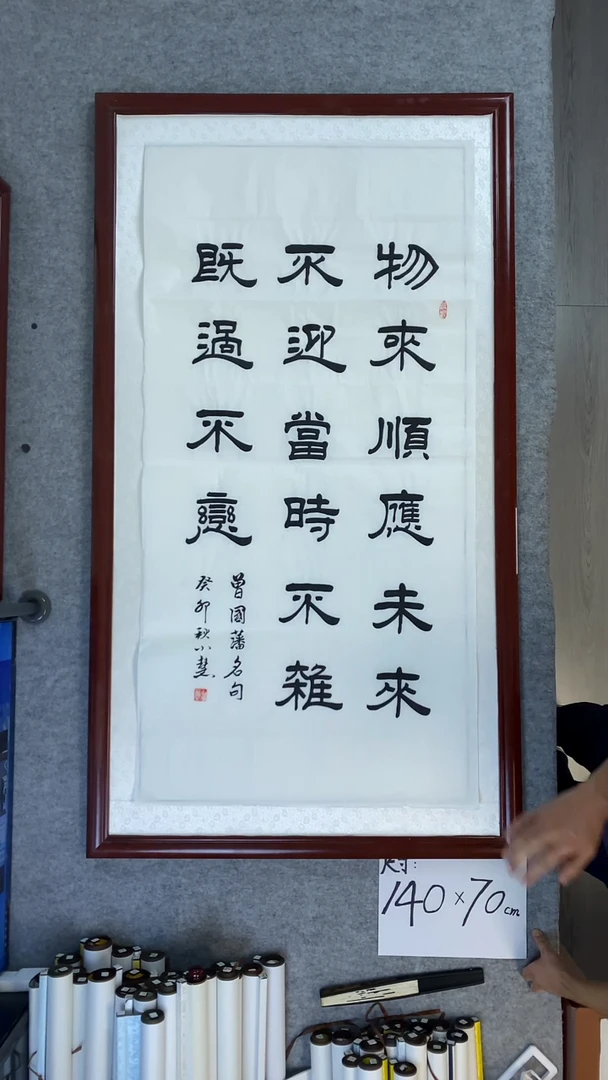 物來順應未來
不迎當時不雜
既過不戀
曾國藩名句
癸卯秋小慧
尺寸:
140×70cm